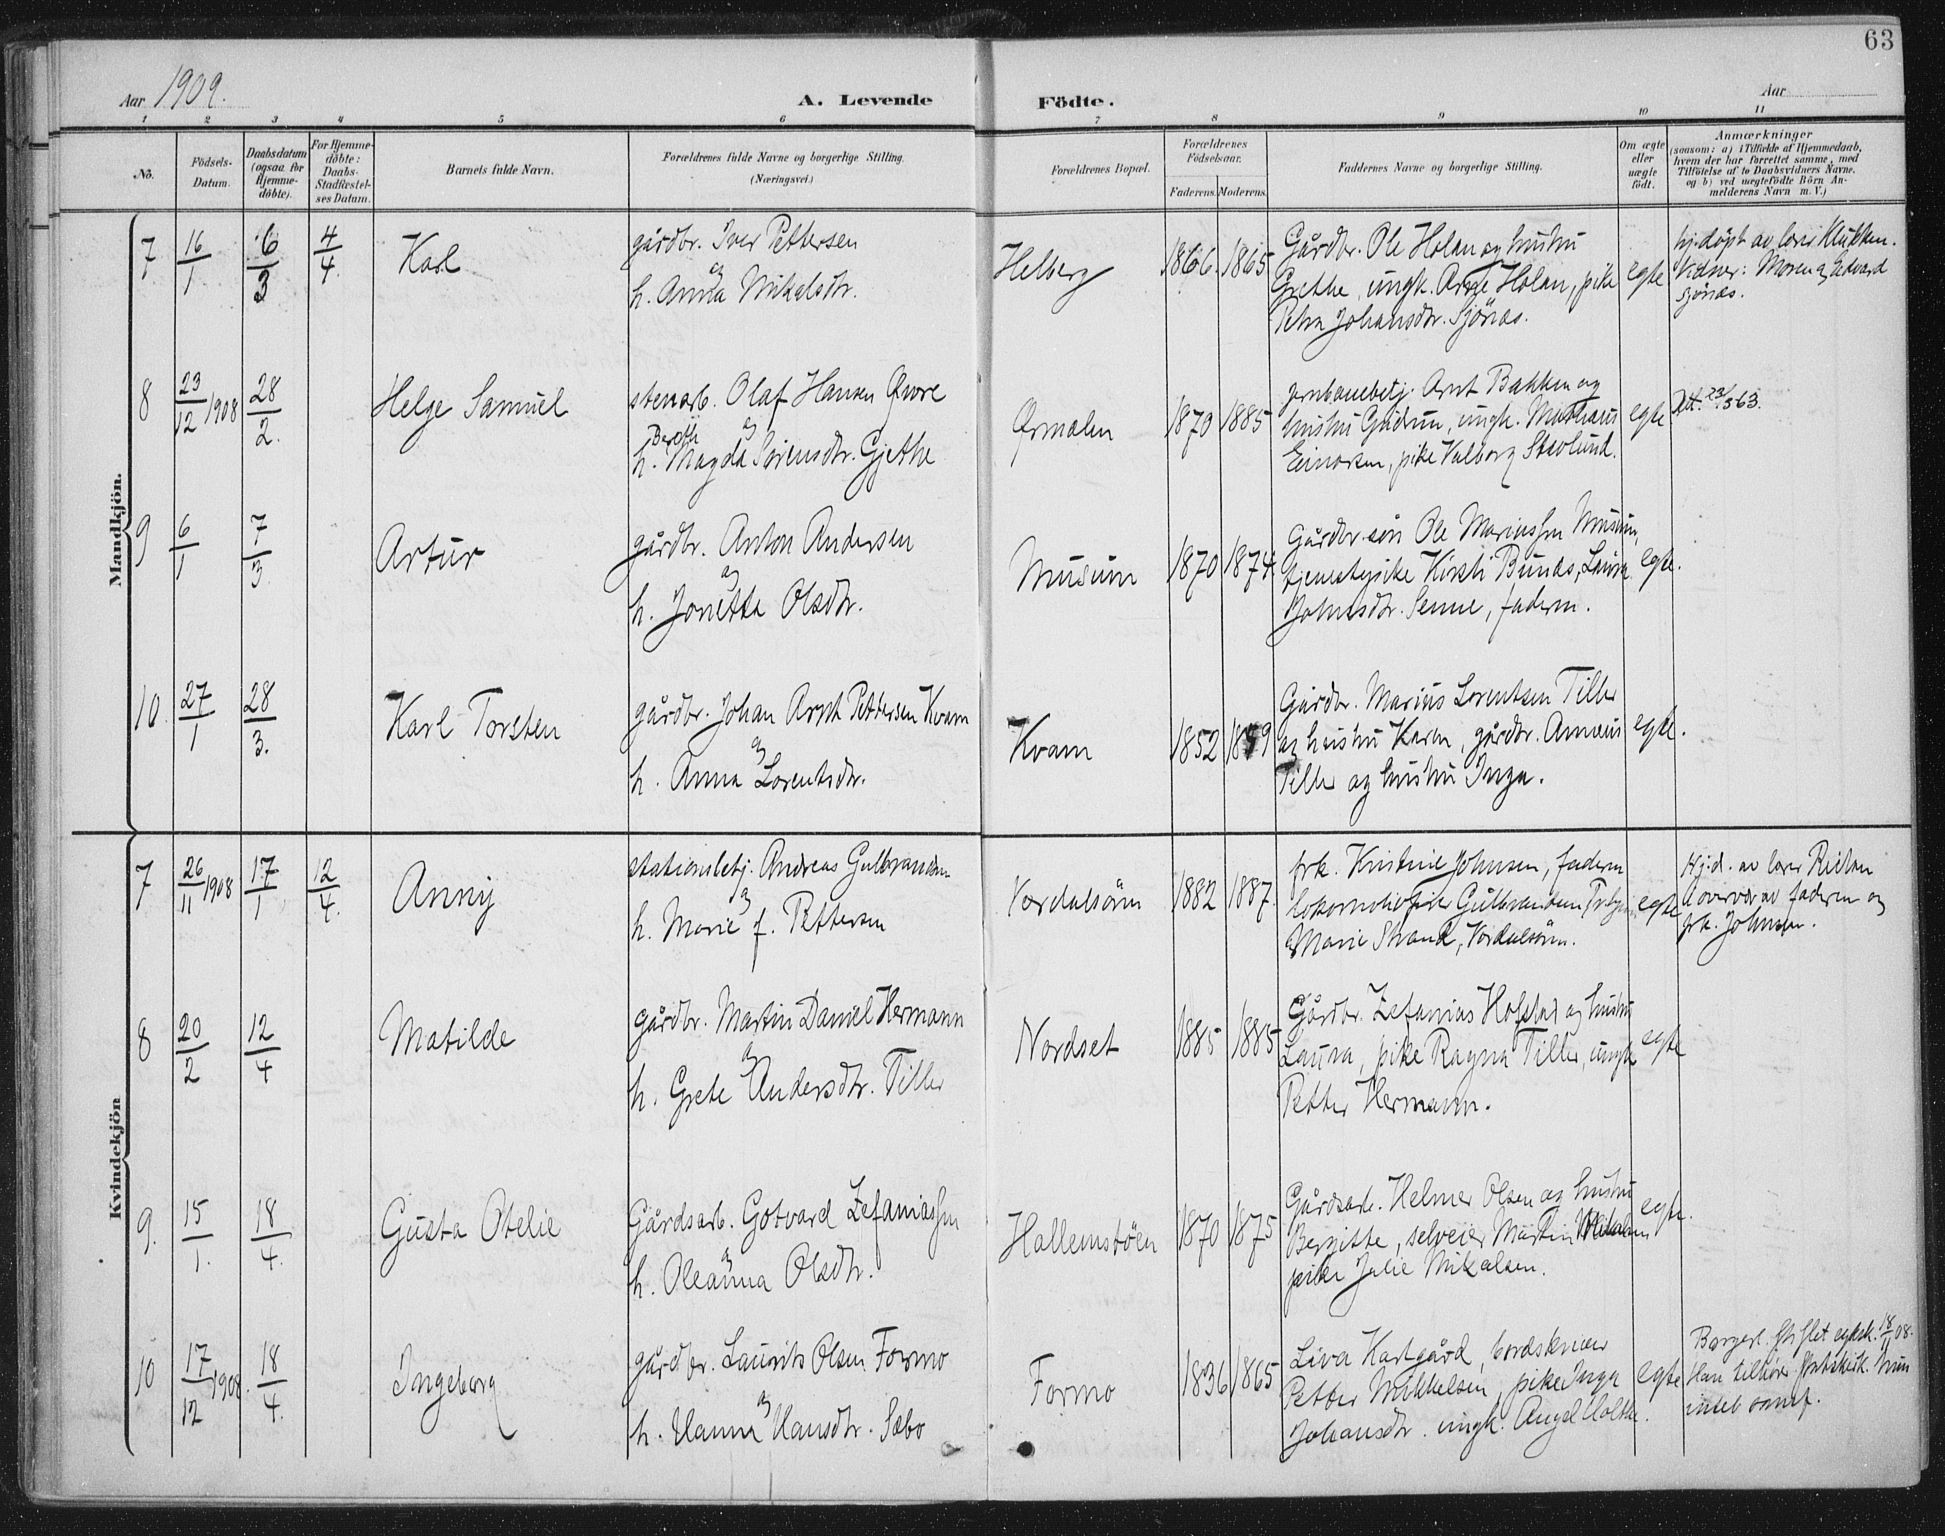 63
Aar 1909.
A. Levende Födte.
Aar
1 2 3 4 5 6 7 8 9 10 11
No.
Födsels-Datum.
Daabsdatum (ogsaa for Hjemme-döbte).
For Hjemme-döbte: Daabs-Stadfæstel-ses Datum.
Barnets fulde Navn.
Forældrenes fulde Navne og borgerlige Stilling.
(Næringsvei.)
Forældrenes Bopæl.
Forældrenes Födselsaar.
Faderens. Moderens.
Faddernes Navne og borgerlige Stilling.
Om ægte eller uægte födt.
Anmærkninger
(saasom: a) i Tilfælde af Hjemmedaab,
hvem der har forrettet samme, med
Tilföielse af to Daabsvidners Navne.
og b) ved uægtefödte Börn An-
melderens Navn m. V.)
Mandkjön.
7 16/1 6/3 4/4 Karl
gårdbr. Iver Pettersen
og
h. Anna Mikalsdtr.
Helberg 1866. 1865
Gårdbr. Ole Holan og hustru
Grethe, ungk. Arne Holan, pike
Petra Johansdtr. Sjönas.
egte
hj.döpt av lærer Klukken.
Vidner: Moren og Edvard
Sjönas.
8 23/12 1908 28/2. Helge Samuel
stenarb. Olaf Hansen
og
h. Magda Sörensdtr. Gjethe
Ørmelen 1870 1885
jernbanebetj. Arnt Bakken og
hustru Gudrun, ungk.
Einarsen, pike Valborg
egte
9 6/1 7/3 Artur
gårdbr. Anton Andersen
og
h. Jonetta Olsdtr.
Musum 1870 1874
Gårdbr. sön Ole Mariussen Musum,
tjenestepike Kirsti Bunes, Laura
Johnsdtr. Senne, faderen.
egte.
10 27/1 28/3. Karl Torsten
gårdbr. Johan Arnt Pettersen Kvam
og
h. Anna Lorentsdtr.
Kvam 1852 1859
Gårdbr. Marius Lorentsen Tiller
og hustru Karen, gårdbr. Anneus
Tiller og hustru Inga.
egte.
Kvindekjön
7 26/11 1908 17/1 12/4. Anny
stationsbetj. Andreas Gulbrandsen
og
h. Marie f. Pettersen
Verdalsören 1882 1887.
frk. Kristine Johnsen, faderen
Gulbrandsen
Marie Strand, Verdalsören.
egte
Hj.d. av lærer
i overvær av faderen og
frk. Johnsen.
8 20/2 12/4 Matilde
gårdbr. Martin Daniel Hermann
og
h. Grete Andersdtr. Tiller
Nordset 1885 1885
Gårdbr. Zefanias Hofstad og hustru
Laura, pike Ragna Tiller, ungk.
Petter Hermann.
egte
9. 15/1. 18/4. Gusta Otelie
Gårdsarb. Gotvard Zefaniassen
og
h. Oleanna Olsdtr.
Hallemstöen 1870 1875
Gårdsarb. Helmer Olsen og hustru
Bergitte, selveier Martin
pike Julie Mikalsen.
egte.
10 17/12 1908. 18/4. Ingeborg
gårdbr. Laurits Olsen Formo
og
h. Hanna Hansdtr. Sæbo
Formo 1836 1865
Liva Hartgård, bordskriver
Petter Mikkelsen, pike Inga
Johansdtr. ungk. Angel Holthe.
egte
Borgerl. stiftet egtsk. 18/11 08.
Han tilhörer